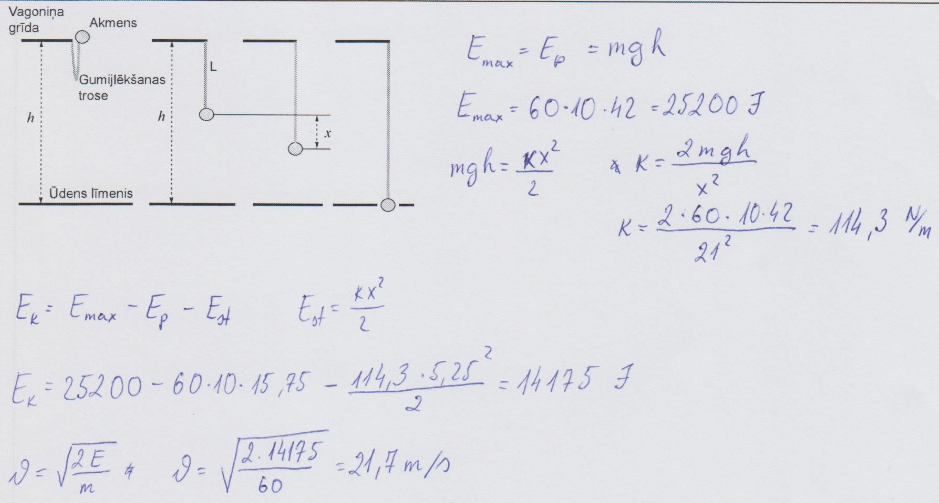 Vagoniņa
grīda
Akmens
L
Gumijlēkšanas
trose
h
h
x
Ūdens līmenis
E_max = E_p = mgh
E_max = 60·10·42 = 25200 J
mgh = kx²/2    k = 2mgh/x²
k = 2·60·10·42/21² = 114,3 N/m
E_k = E_max − E_p − E_st    E_st = kx²/2
E_k = 25200 − 60·10·15,75 − 114,3·5,25²/2 = 14175 J
ϑ = √(2E/m)    ϑ = √(2·14175/60) = 21,7 m/s